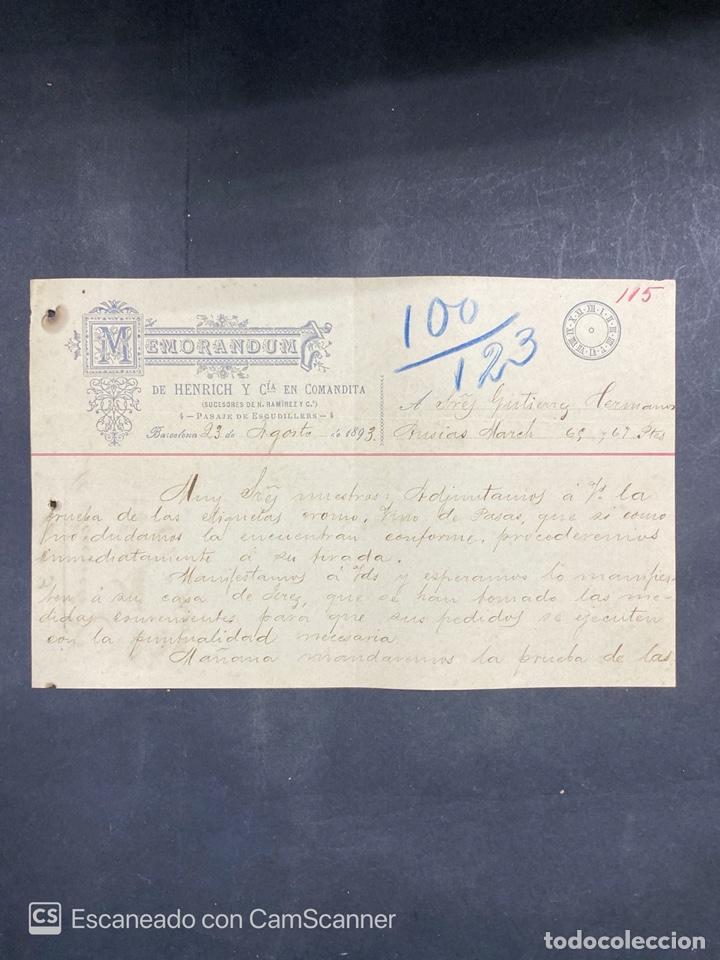 115
100
123
MEMORANDUM
DE HENRICH Y Cía EN COMANDITA
(SUCESORES DE N. RAMÍREZ Y C.ª)
4 – PASAJE DE ESCUDILLERS – 4
Barcelona 23 de Agosto de 1893.
A Sres Gutierrez Hermanos
Ausias March 65 y 67. Ptes
Muy Sres nuestros: Adjuntamos á Vs. la
prueba de las etiquetas cromo, Vino de Pasas, que si como
no dudamos la encuentran conforme, procederemos
inmediatamente á su tirada.
Manifestamos á Vds y esperamos lo manifies-
ten á su casa de Jerez, que se han tomado las me-
didas convenientes para que sus pedidos se ejecuten
con la puntualidad necesaria.
Mañana mandaremos la prueba de las
CS Escaneado con CamScanner
todocoleccion